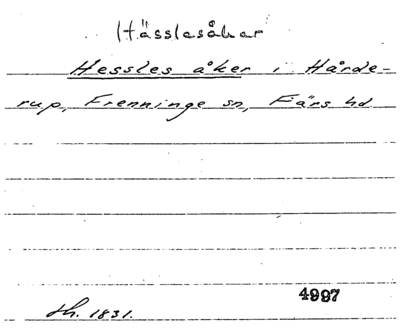 Hässlesåker
Hessles åker i Hårde-
rup, Frenninge sn, Färs hd.
4997
Lh. 1831.